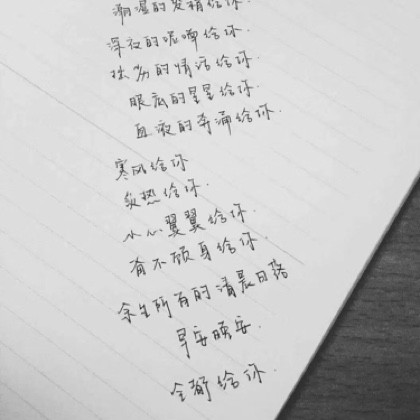 潮湿的发梢给你.
深夜的呢喃给你.
拙劣的情话给你.
眼底的星星给你.
血液的奔涌给你.
寒风给你
炙热给你.
小心翼翼给你.
奋不顾身给你.
余生所有的清晨日落
早安晚安.
全都给你.